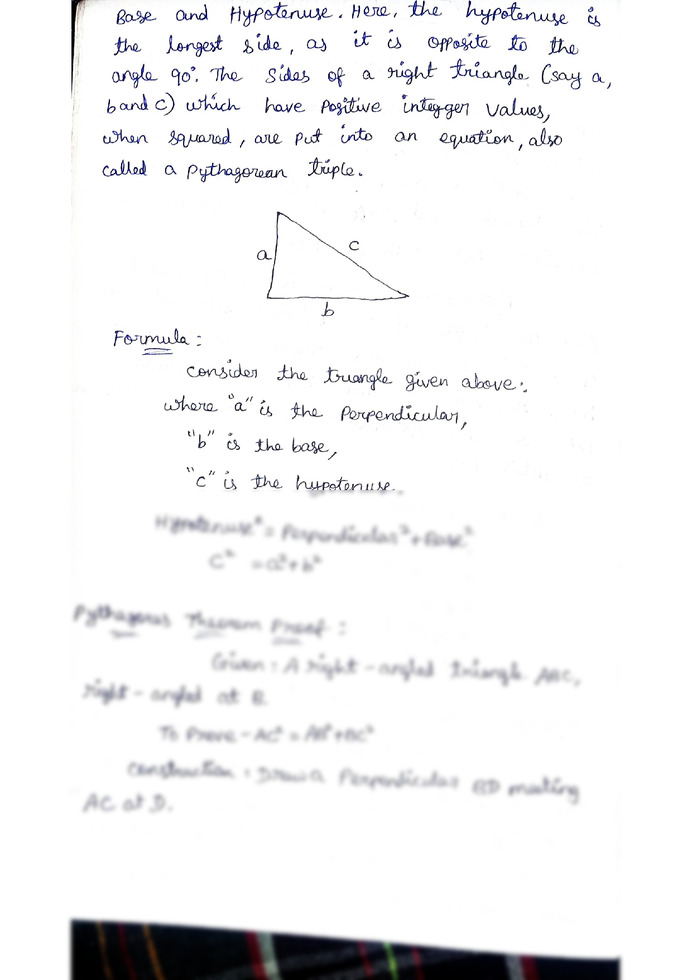 Base and Hypotenuse. Here, the hypotenuse is
the longest side, as it is opposite to the
angle 90°. The Sides of a right triangle (say a,
b and c) which have positive integger values,
when squared, are put into an equation, also
called a pythagorean triple.
a
c
b
Formula :
Consider the triangle given above:
where "a" is the Perpendicular,
"b" is the base,
"c" is the hypotenuse.
Hypotenuse² = Perpendicular² + Base²
C² = a² + b²
Pythagoras Theorem Proof :
Given : A right - angled triangle ABC,
right - angled at B.
To Prove - AC² = AB² + BC²
Construction : Draw a Perpendicular BD meeting
AC at D.